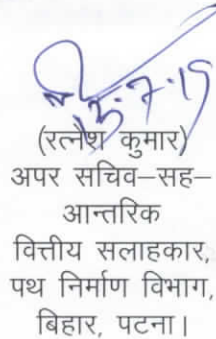 13.7.19
(रत्नेश कुमार)
अपर सचिव–सह–
आन्तरिक
वित्तीय सलाहकार,
पथ निर्माण विभाग,
बिहार, पटना।